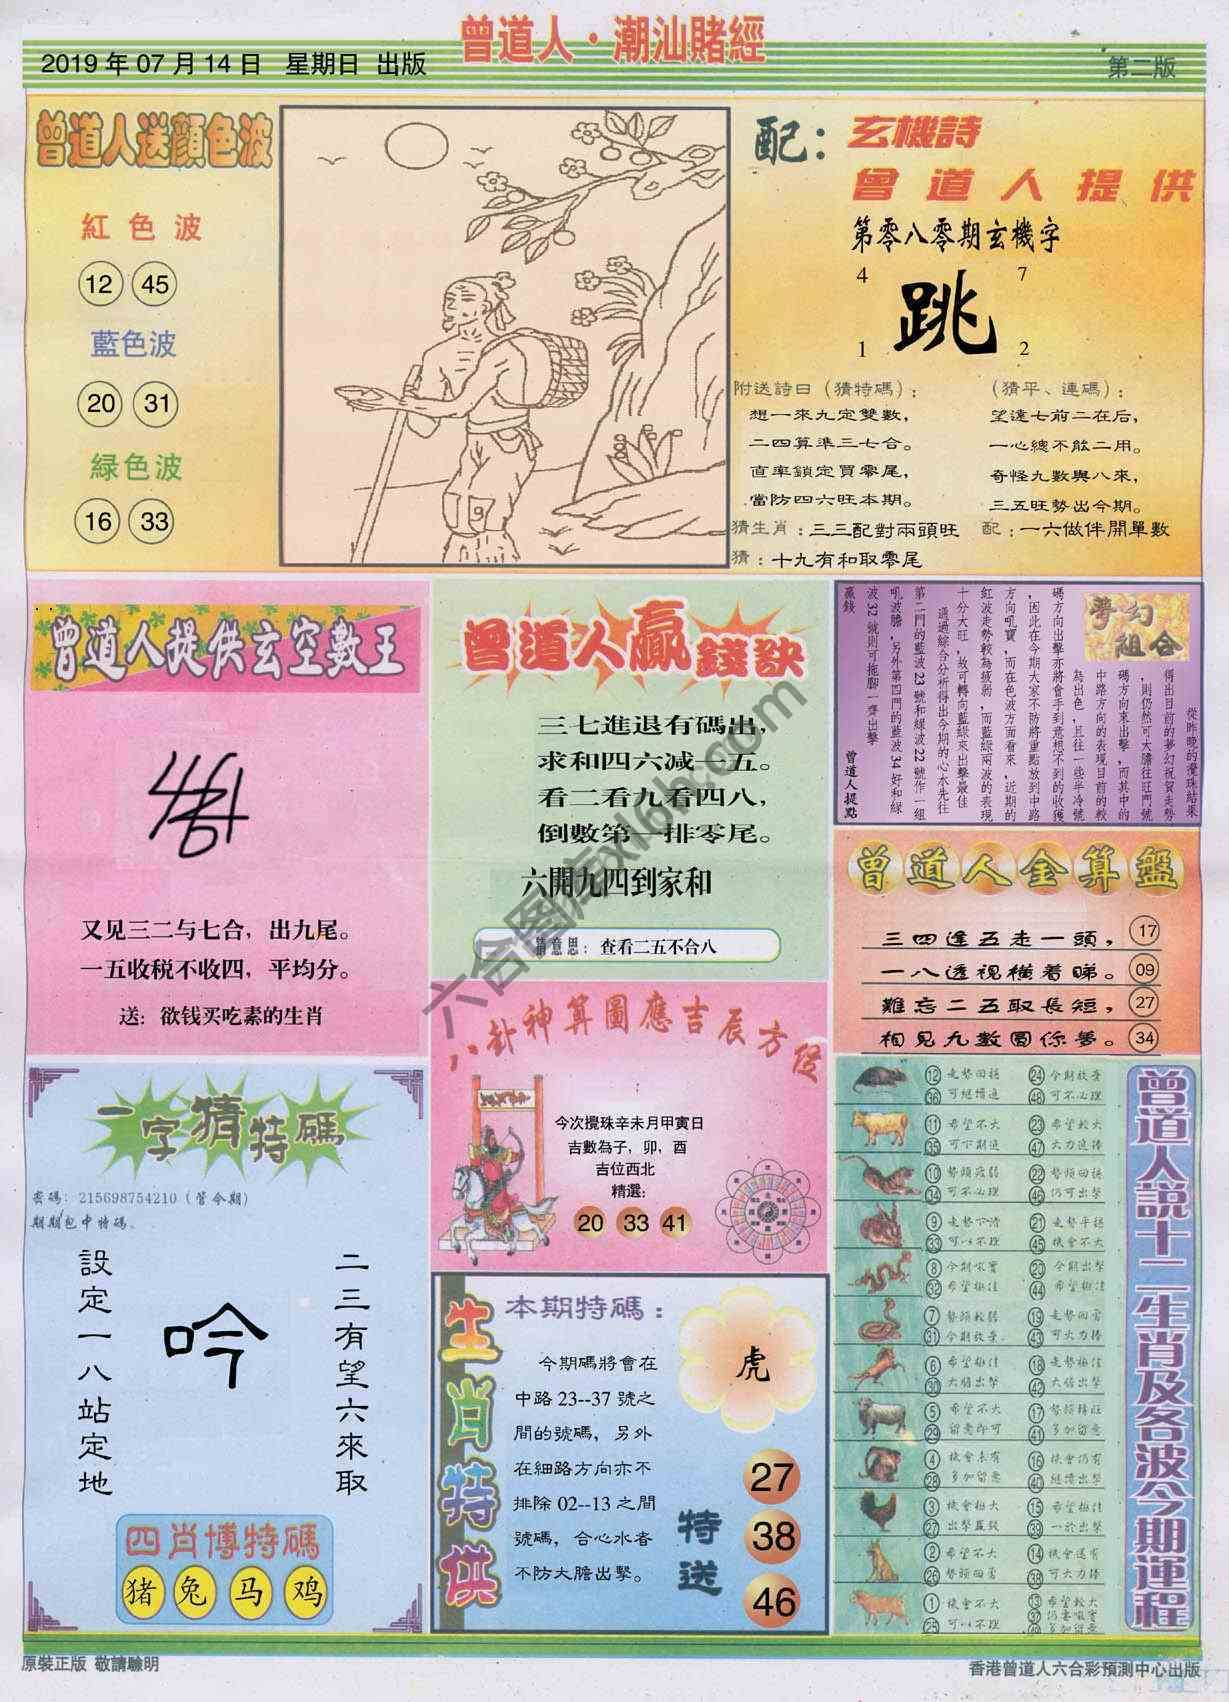 曾道人·潮汕賭經
2019年07月14日 星期日 出版
第二版
曾道人送顔色波
紅色波
12 45
藍色波
20 31
緑色波
16 33
9
配：
玄機詩
曾道人提供
第零八零期玄機字
4 7
跳
1 2
附送詩曰（猜特碼）：
想一來九定雙數，
二四算準三七合。
直率鎖定買零尾，
當防四六旺本期。
（猜平、連碼）：
望遠七前二在后，
一心總不能二用。
奇怪九數與八來，
三五旺勢出今期。
猜生肖：三三配對兩頭旺
配：一六做伴開單數
猜：十九有和取零尾
曾道人提供玄空數王
又见三二与七合，出九尾。
一五收税不收四，平均分。
送：欲钱买吃素的生肖
曾道人贏錢訣
三七進退有碼出，
求和四六减一五。
看二看九看四八，
倒數第一排零尾。
六開九四到家和
猜意思：查看二五不合八
夢幻組合
從昨晚的攪珠結果
得出目前的夢幻祝賀走勢
，則仍然可大膽往旺門號
碼方向來出擊，而其中的
中路方向的表現目前的較
為出色，且往一些半冷號
碼方向出擊亦將會手到意想不到的收獲
，因此在今期大家不防將重點放到中路
方向吼寶，而在色波方面看來，近期的
紅波走勢較為疲弱，而藍綠兩波的表現
十分大旺，故可轉向藍綠來出擊最佳
通過綜合分析得出今期的心水先往
第二門的藍波23號和綠波22號作一組
吼波膽，另外第四門的藍波34好和綠
波32號則可拖腳一齊出擊
贏錢
曾道人提點
曾道人金算盤
三四逢五走一頭， 17
一八透視橫着睇。 09
難忘二五取長短， 27
相見九數圓你夢。 34
八卦神算圖應吉辰方位
今次攪珠辛未月甲寅日
吉數為子，卯，酉
吉位西北
精選：
20 33 41
一字猜特碼
密碼：215698754210（管令期）
期期包中特碼。
二三有望六來取
吟
設定一八站定地
四肖博特碼
猪 兔 马 鸡
生肖特供
本期特碼：
今期碼將會在
中路23--37號之
間的號碼，另外
在細路方向亦不
排除02--13之間
號碼，合心水者
不防大膽出擊。
虎
特送
27
38
46
曾道人說十二生肖及各波今期運程
12 走勢回穩 24 今期收靠
36 可繼增進 48 可不必理
11 希望不大 23 希望較大
35 可下期追 47 大力追捧
10 勢頭疲弱 22 勢頭回穩
34 可不必理 46 仍可出擊
9 走勢下滑 21 走勢平穩
33 可以不理 45 機會不大
8 今期吸寶 20 今期出擊
32 希望極佳 44 希望極佳
7 勢頭較弱 19 走勢回雲
31 今期放棄 43 可大力捧
6 希望極佳 18 走勢極佳
30 大膽出擊 42 大膽出擊
5 希望不大 17 勢頭轉旺
29 留意即可 41 多加留意
4 機會未有 16 機會仍有
28 多加留意 40 繼續出擊
3 機會極大 15 希望極佳
27 出擊贏錢 39 一於出擊
2 希望不大 14 機會還有
26 勢頭回雲 38 可大力捧
1 機會不大 13 希望較大
25 可以不理 37 仍要吸寶
49 多加留意
原裝正版 敬請驗明
香港曾道人六合彩預測中心出版
六合图库xl6hk.com